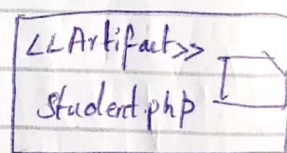 <<Artifact>>
Student.php